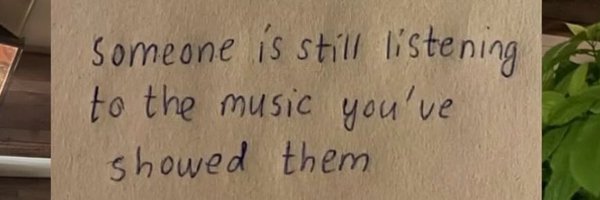 someone is still listening
to the music you've
showed them